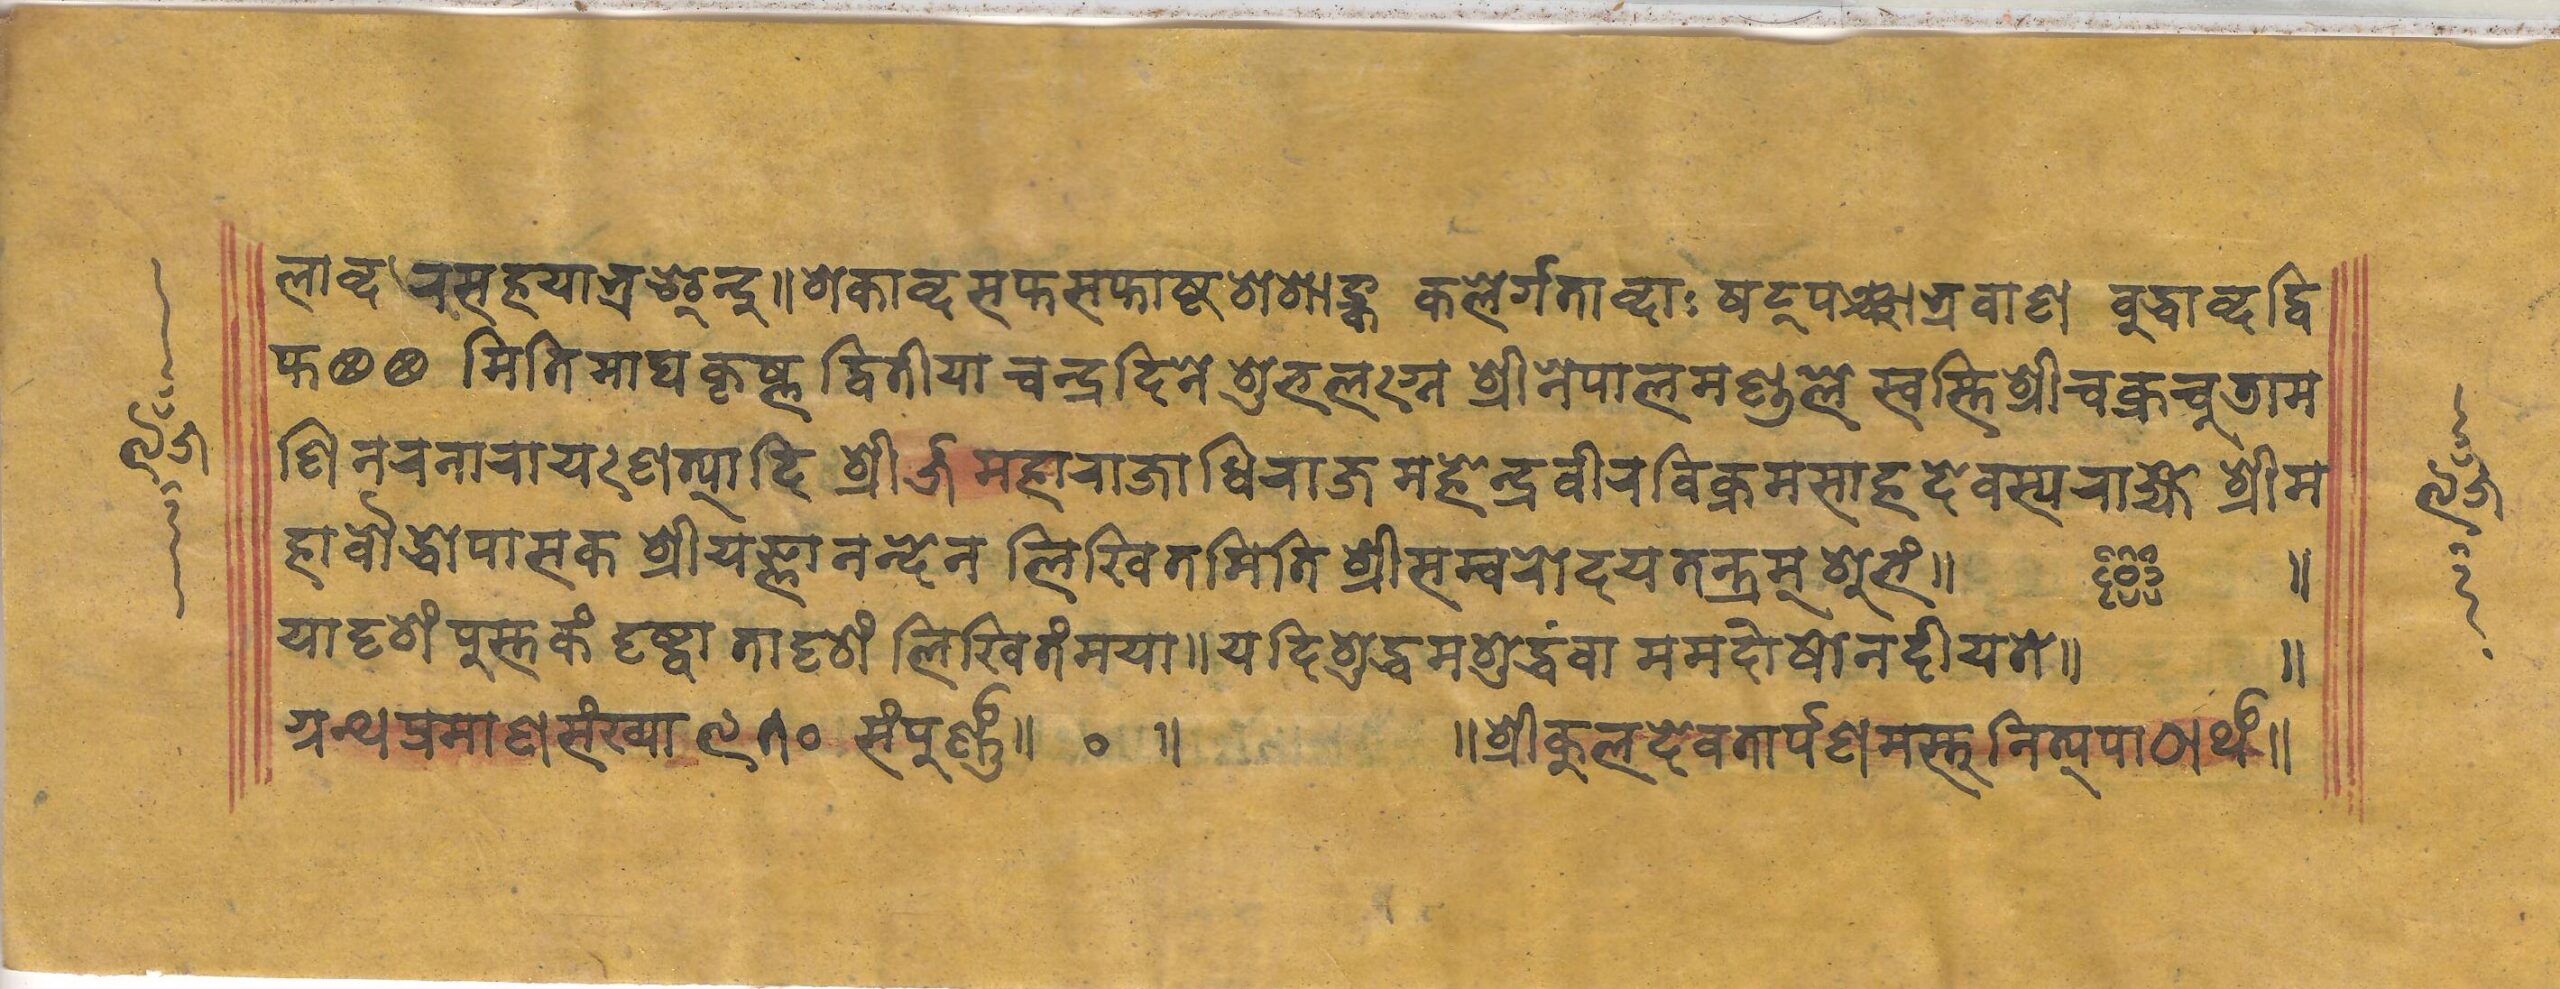 लाब्द रसहयाभ्रशून्दु॥ शकाब्द सप्तसप्ताष्ट शशाङ्क कलेर्गताब्दाः षट्पञ्चाभ्रवाण बुद्धाब्द द्वि
मिति माघ कृष्ण द्वितीया चन्द्रदिने शुभलग्ने श्री नेपालमण्डले स्वस्ति श्री चक्रचुडाम
णि नरनारायणेत्यादि श्री ५ महाराजाधिराज महेन्द्र वीर विक्रम साह देवस्य राज्ये श्री म
हाबौद्धोपासक श्री यज्ञानन्देन लिखितमिति श्री सम्वरोदय तन्त्रम् शुभं॥ ॥
यादृशं पुस्तकं दृष्ट्वा तादृशं लिखितं मया॥ यदि शुद्धमशुद्धंवा मम दोषो न दीयते॥ ॥
ग्रन्थ प्रमाण संख्या संपूर्णं॥ ० ॥ ॥ श्री कुलदेवतार्पणमस्तु नित्यपाठार्थं॥